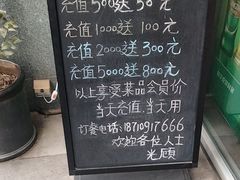 充值500送50元
充值1000送100元
充值2000送300元
充值5000送800元
以上享受菜品会员价
当天充值,当天用
订餐电话:18710917666
欢迎各位人士
光顾